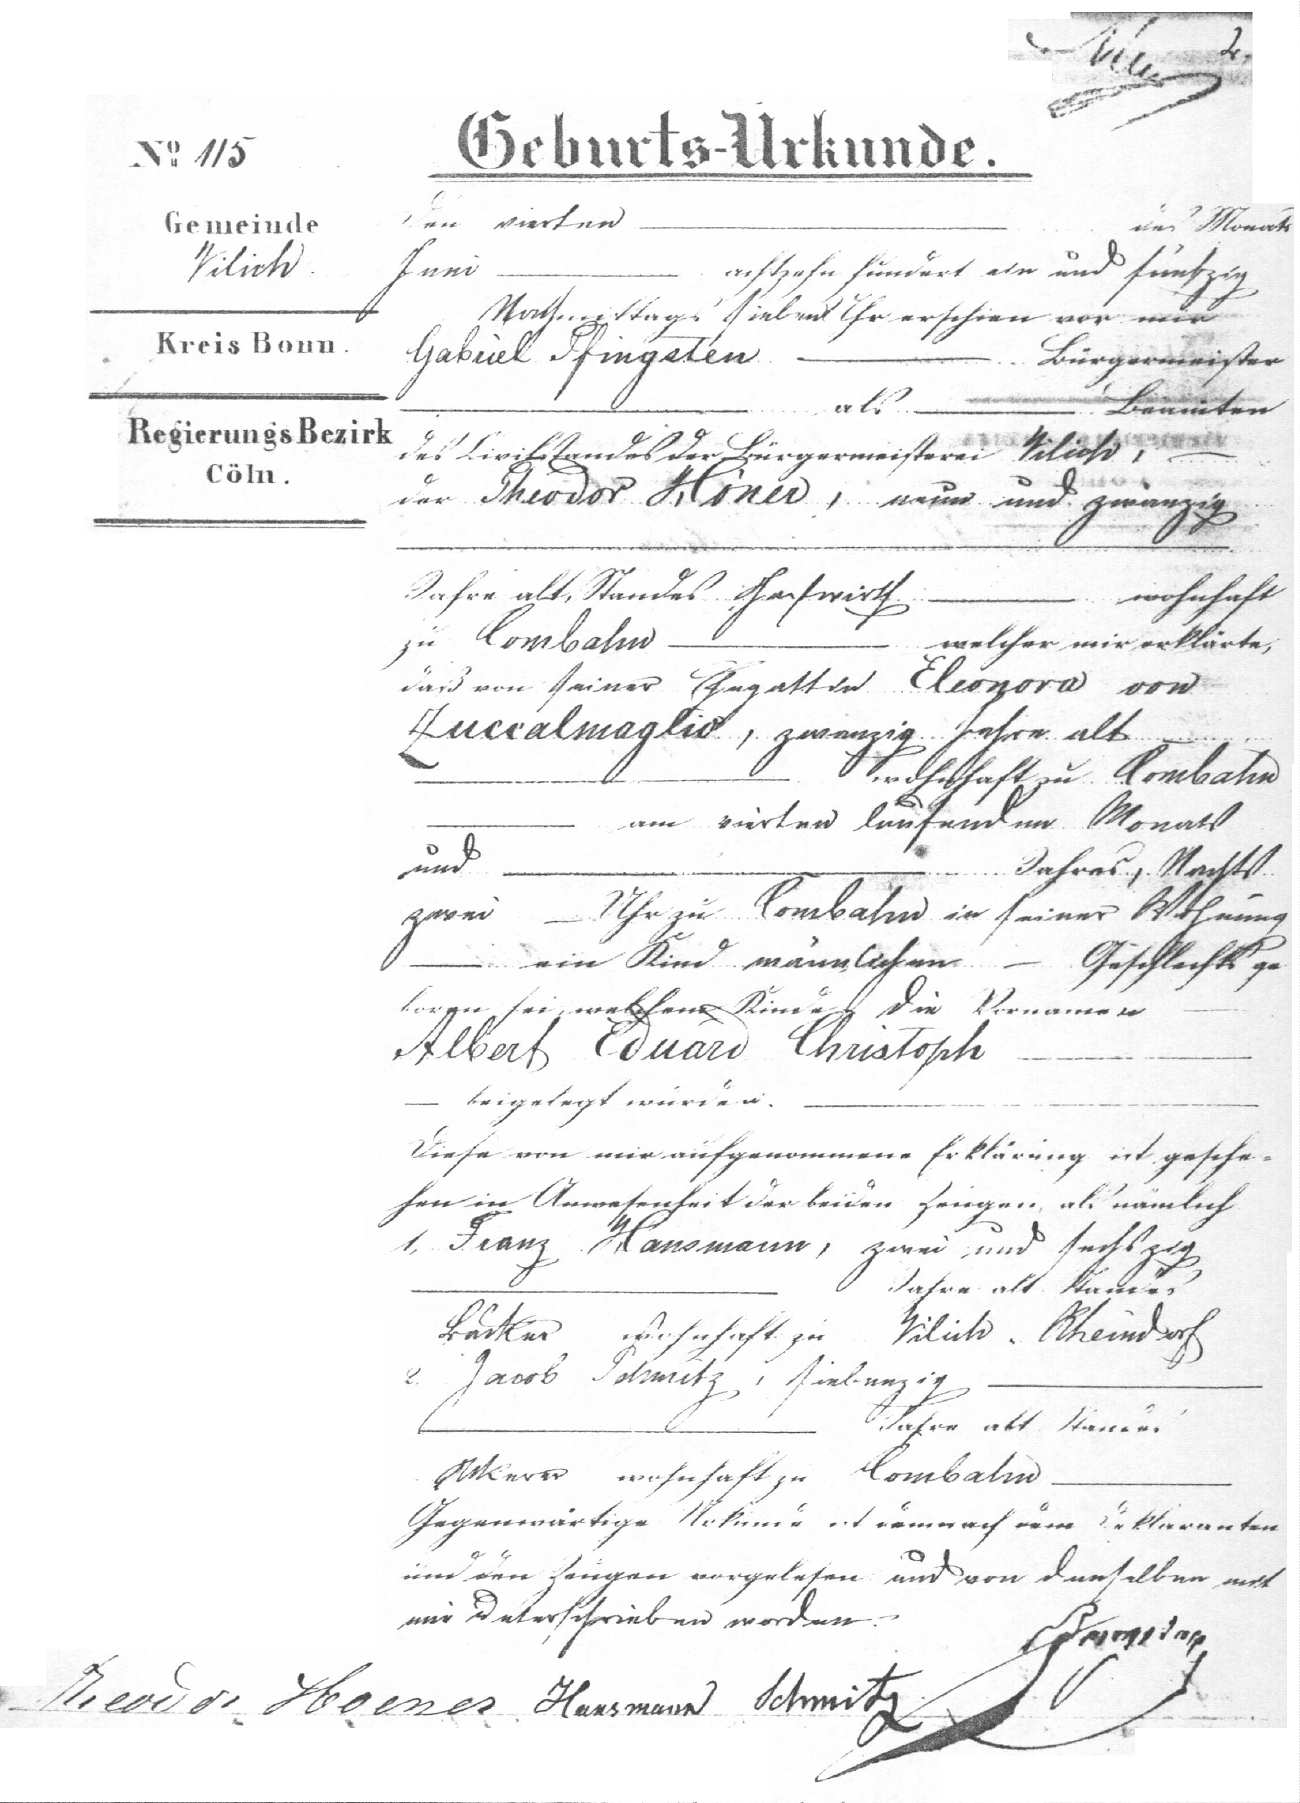 2.
Geburts-Urkunde.
No 115
Gemeinde
Vilich.
Kreis Bonn.
Regierungs Bezirk
Cöln.
Den vierten des Monats
Juni achtzehn hundert ein und fünfzig
Nachmittags sieben Uhr erschien vor mir
Gabriel Pfingsten Bürgermeister
als Beamten
des Civilstandes der Bürgermeisterei Vilich,
der Theodor Höner, neun und zwanzig
Jahre alt, Standes Gastwirth wohnhaft
zu Combahn welcher mir erklärte,
daß von seiner Ehegattin Eleonora von
Zuccalmaglio, zwanzig Jahre alt
wohnhaft zu Combahn
am vierten laufenden Monats
und Jahres, Nachts
zwei Uhr zu Combahn in seiner Wohnung
ein Kind männlichen Geschlechts ge
boren sei, welchem Kinde die Vornamen
Albert Eduard Christoph
beigelegt wurden.
Diese von mir aufgenommene Erklärung ist gesche-
hen in Anwesenheit der beiden Zeugen, als nämlich
1, Franz Hansmann, zwei und sechszig
Jahre alt Standes
Bäcker wohnhaft zu Vilich-Rheindorf
2. Jacob Schmitz, siebenzig
Jahre alt Standes
Ackerer wohnhaft zu Combahn
Gegenwärtige Urkunde ist demnach dem Deklaranten
und den Zeugen vorgelesen und von denselben mit
mir unterschrieben worden.
Theodor Hoener Hansmann Schmitz Pfingsten